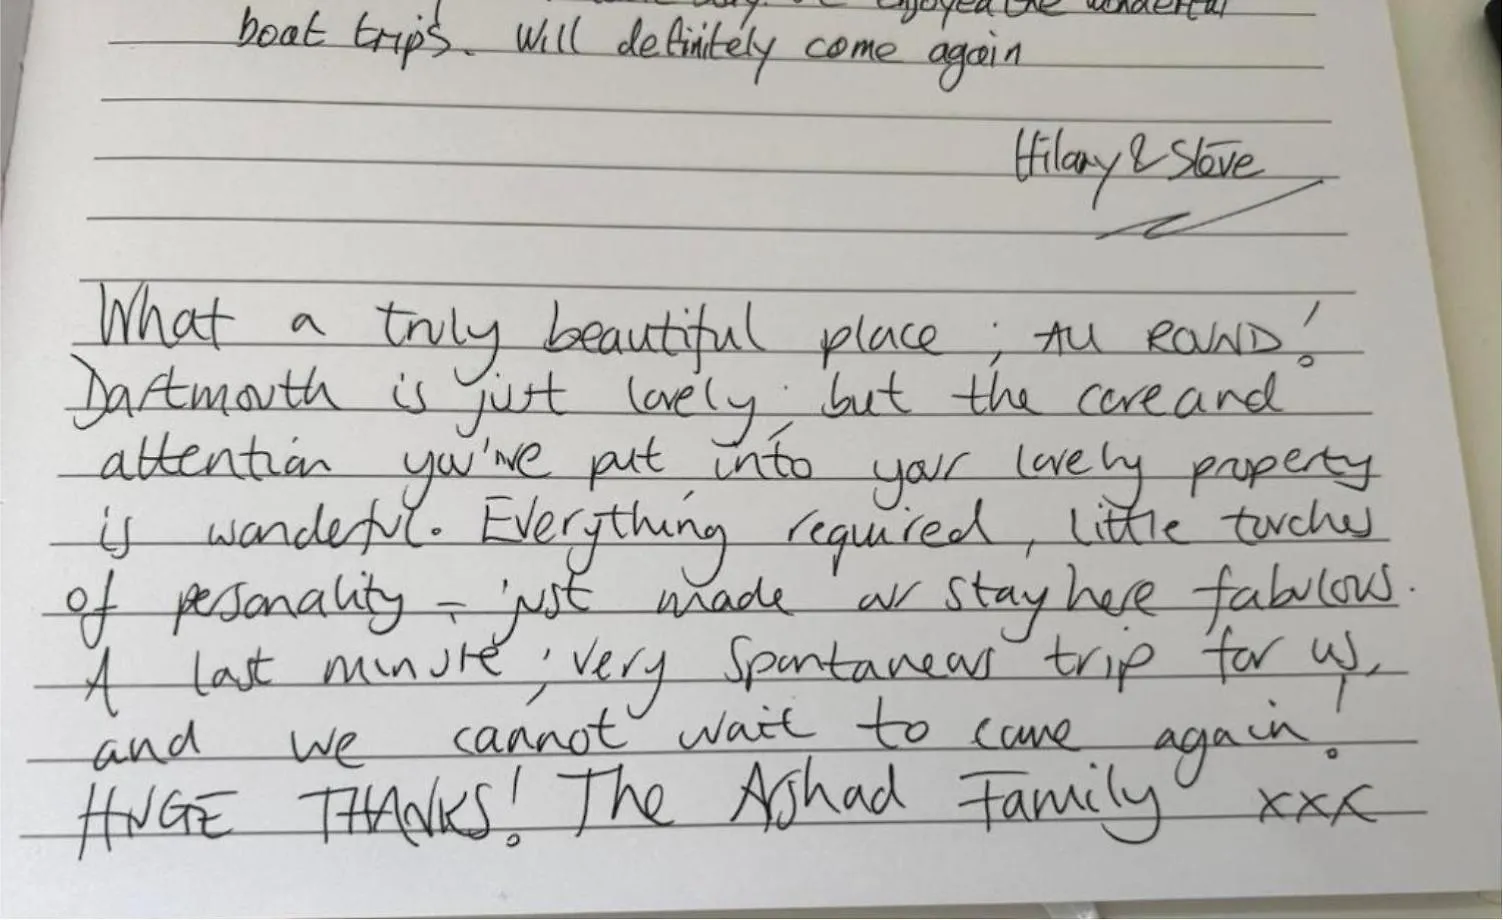 enjoyed the wonderful
boat trips. Will definitely come again
Hilary & Steve
What a truly beautiful place ; ALL ROUND!
Dartmouth is just lovely, but the care and
attention you've put into your lovely property
is wonderful. Everything required, little touches
of personality - just made our stay here fabulous.
A last minute, very spontaneous trip for us,
and we cannot wait to come again!
HUGE THANKS! The Ashad Family xxx